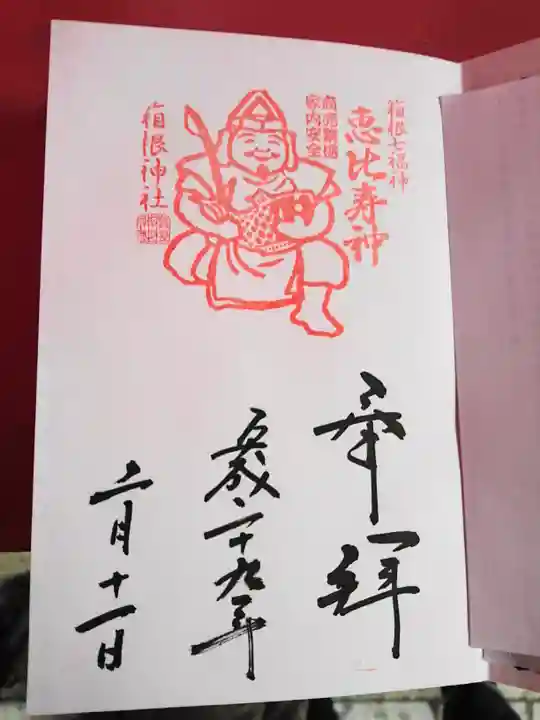 箱根七福神
恵比寿神
商売繁盛
家内安全
箱根神社
奉拝
平成二十九年
二月十一日